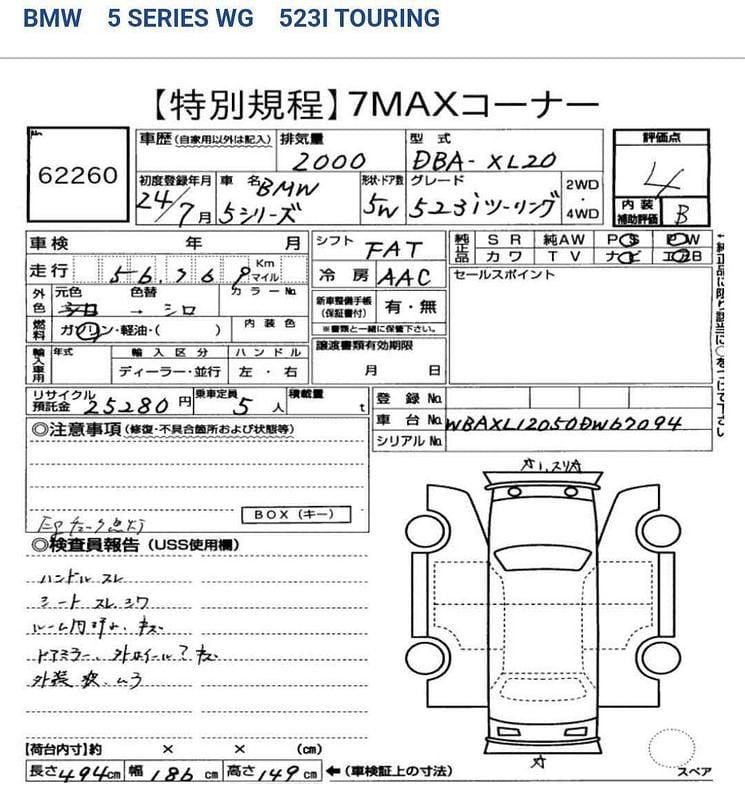 BMW 5 SERIES WG 523I TOURING
【特別規程】7MAXコーナー
No 62260
車歴(自家用以外は記入) 排気量 2000 型式 DBA-XL20
評価点 4
初度登録年月 24/7月 車名 BMW 5シリーズ 形状・ドア数 5W グレード 523iツーリング 2WD・4WD
内装補助評価 B
車検 年 月 シフト FAT
純正品 SR 純AW PS PW
カワ TV ナビ エアB
走行 Km マイル 冷房 AAC
セールスポイント
外色 元色 シロ 色替 → シロ カラーNo.
新車整備手帳(保証書付) 有・無
※書類と一緒に保管下さい。
燃料 ガソリン・軽油・( ) 内装色
輸入車用 年式 輸入区分 ハンドル
ディーラー・並行 左・右
譲渡書類有効期限 月 日
↑純正品に限り該当に○をつけて下さい
リサイクル預託金 25280円 乗車定員 5人 積載量 t
登録No.
車台No. WBAXL12050DW67094
シリアルNo.
◎注意事項(修復・不具合箇所および状態等)
BOX(キー)
Egチェック点灯
◎検査員報告(USS使用欄)
ハンドル スレ
シート スレ、シワ
ルーム内 キズ
ドアミラー、外 キズ
外装 ムラ
【荷台内寸】約 × × (cm)
長さ494cm 幅186cm 高さ149cm ←(車検証上の寸法)
スペア